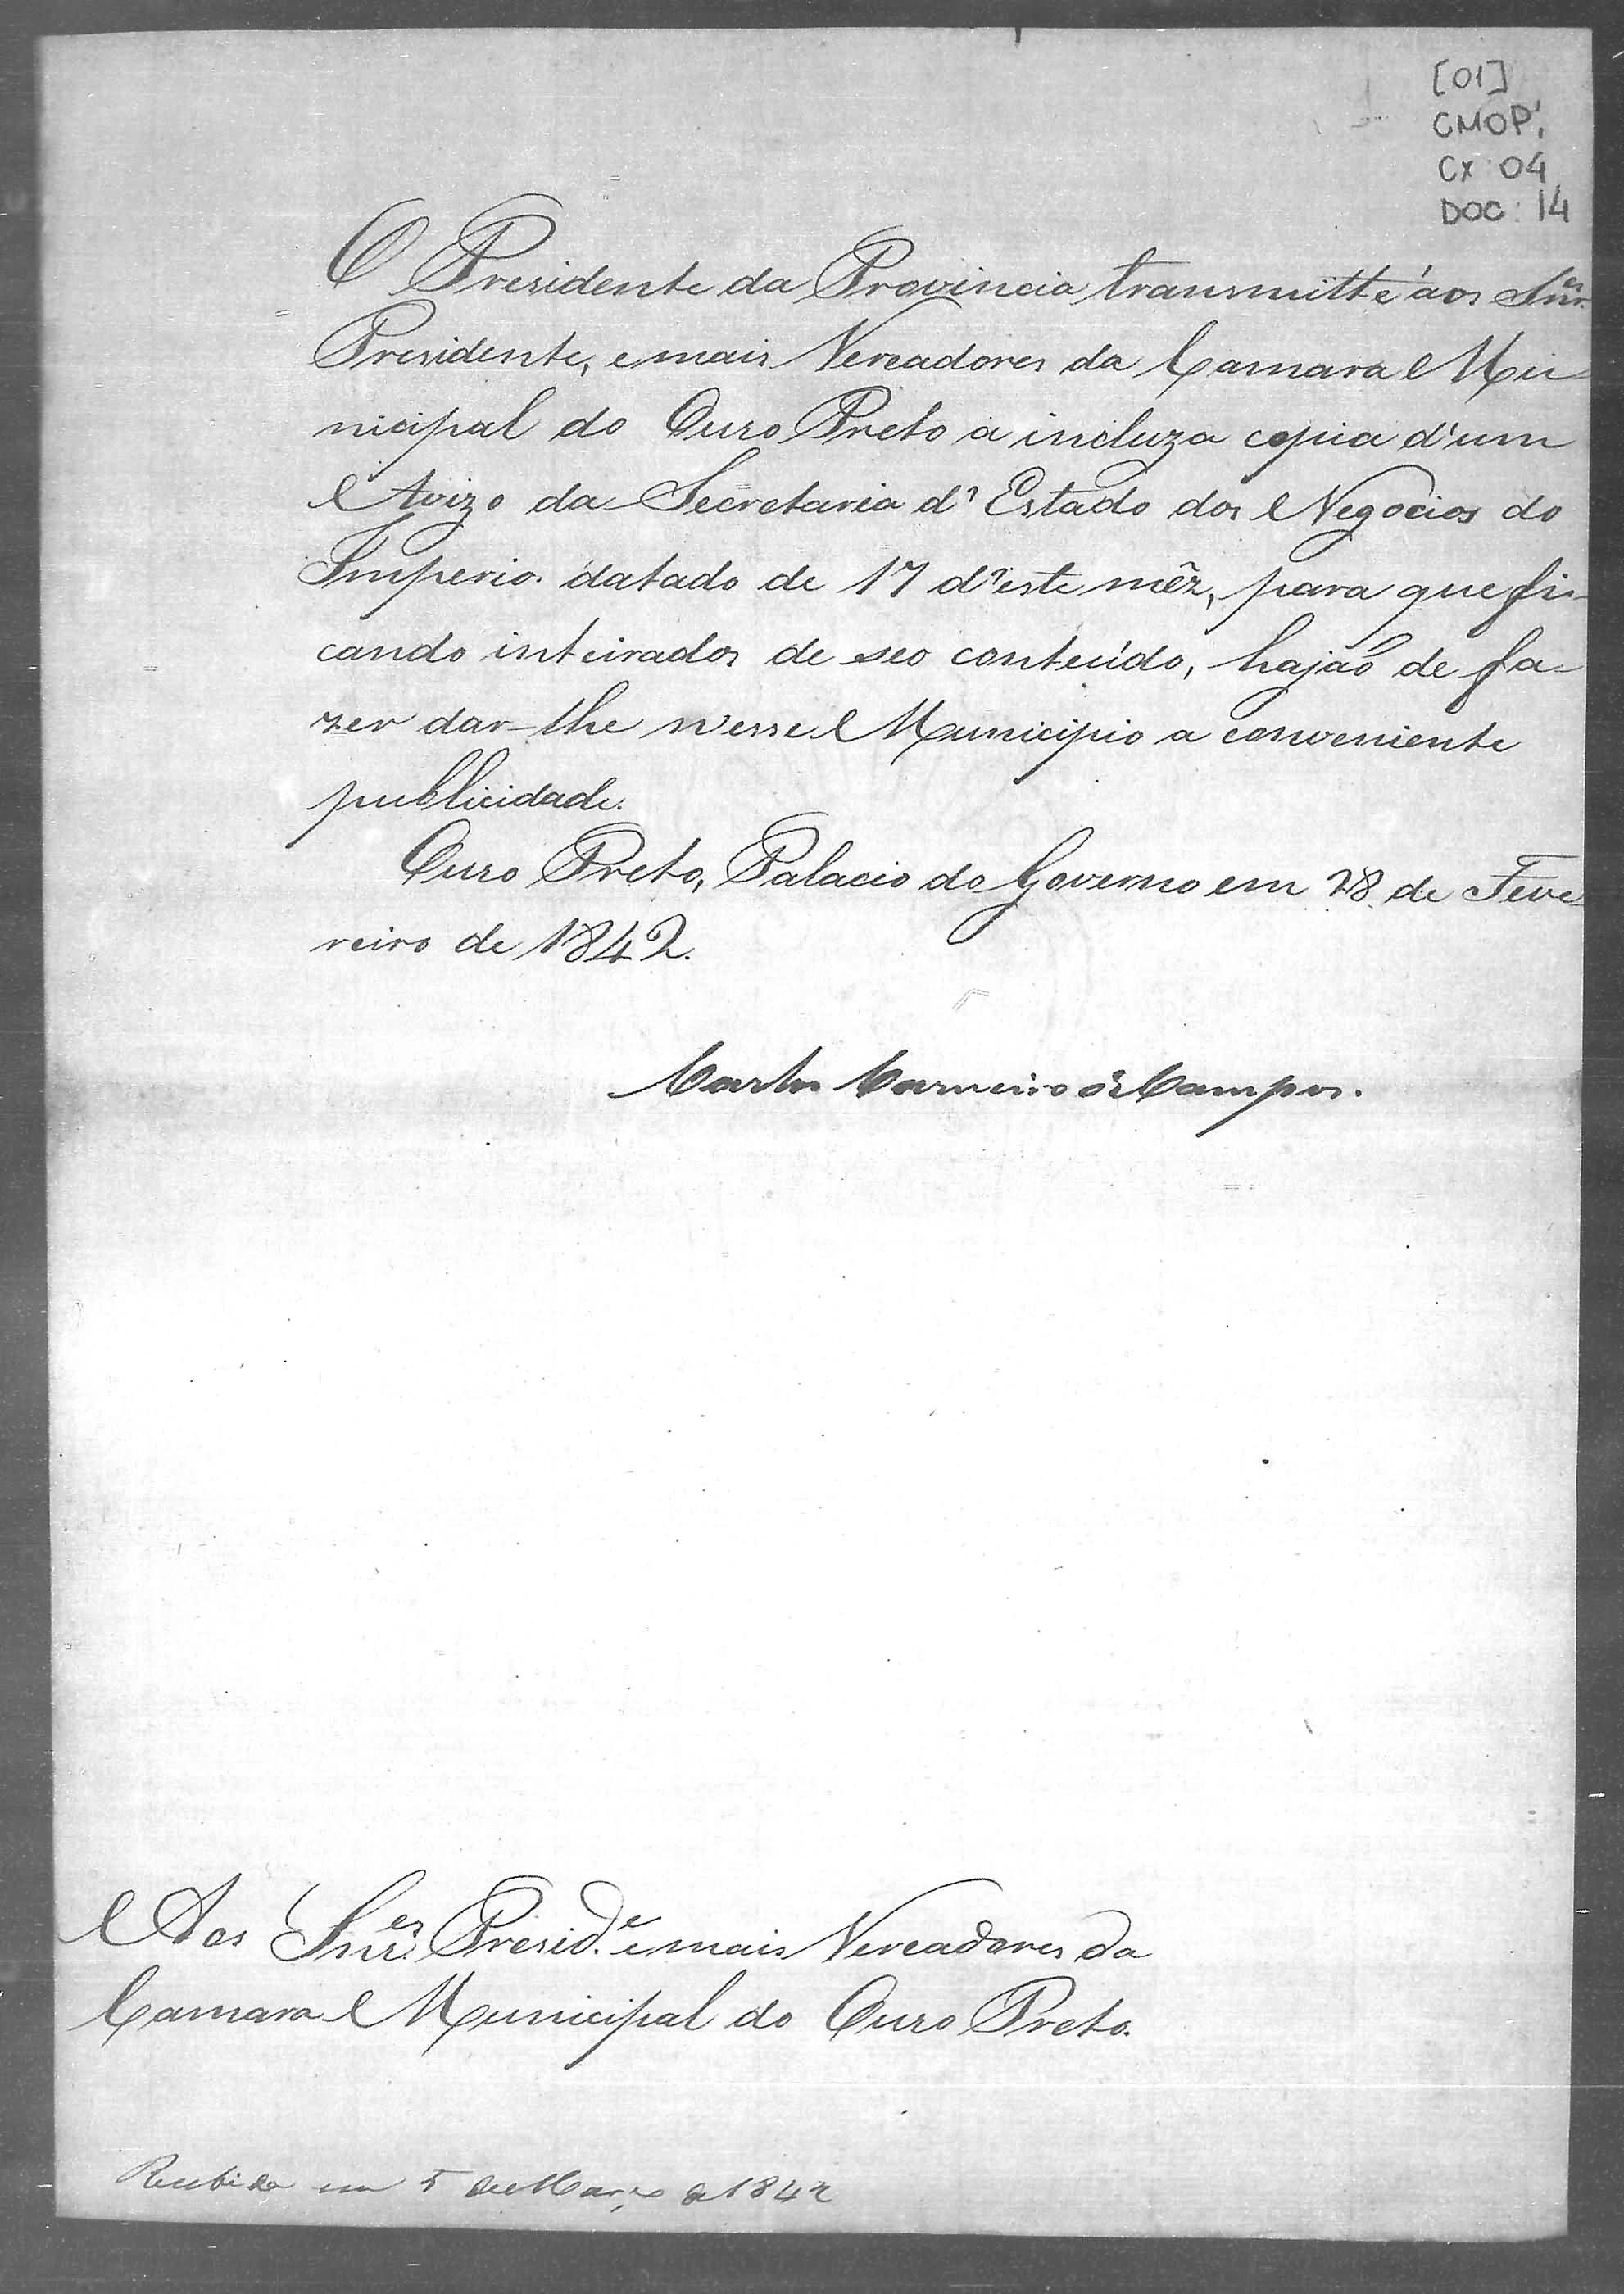 [01]
CMOP,
CX 04
DOC: 14
O Presidente da Provincia transmitte áos Snr.es
Presidente, e mais Vereadores da Camara Mu
nicipal do Ouro Preto a incluza copia d'um
Avizo da Secretaria d'Estado dos Negocios do
Imperio datado de 17 d'este mêz, para que fi-
cando inteirados de seo conteúdo, hajaõ de fa-
zer dar-lhe n'esse Municipio a conveniente
publicidade.
Ouro Preto, Palacio do Governo em 28 de Feve
reiro de 1842.
Carlos Carneiro de Campos.
Aos Snr.es Presid.e e mais Vereadores da
Camara Municipal do Ouro Preto.
Recebida em 5 de Março de 1842